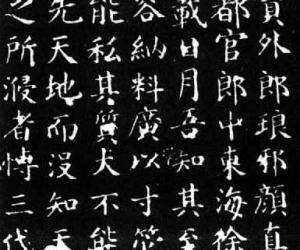 員外郎琅邪顏真
都官郎中東海徐
載日月吾知其至
容納料廣以寸管
能私其質犬不能
先天地而沒知
之所浸者博三代